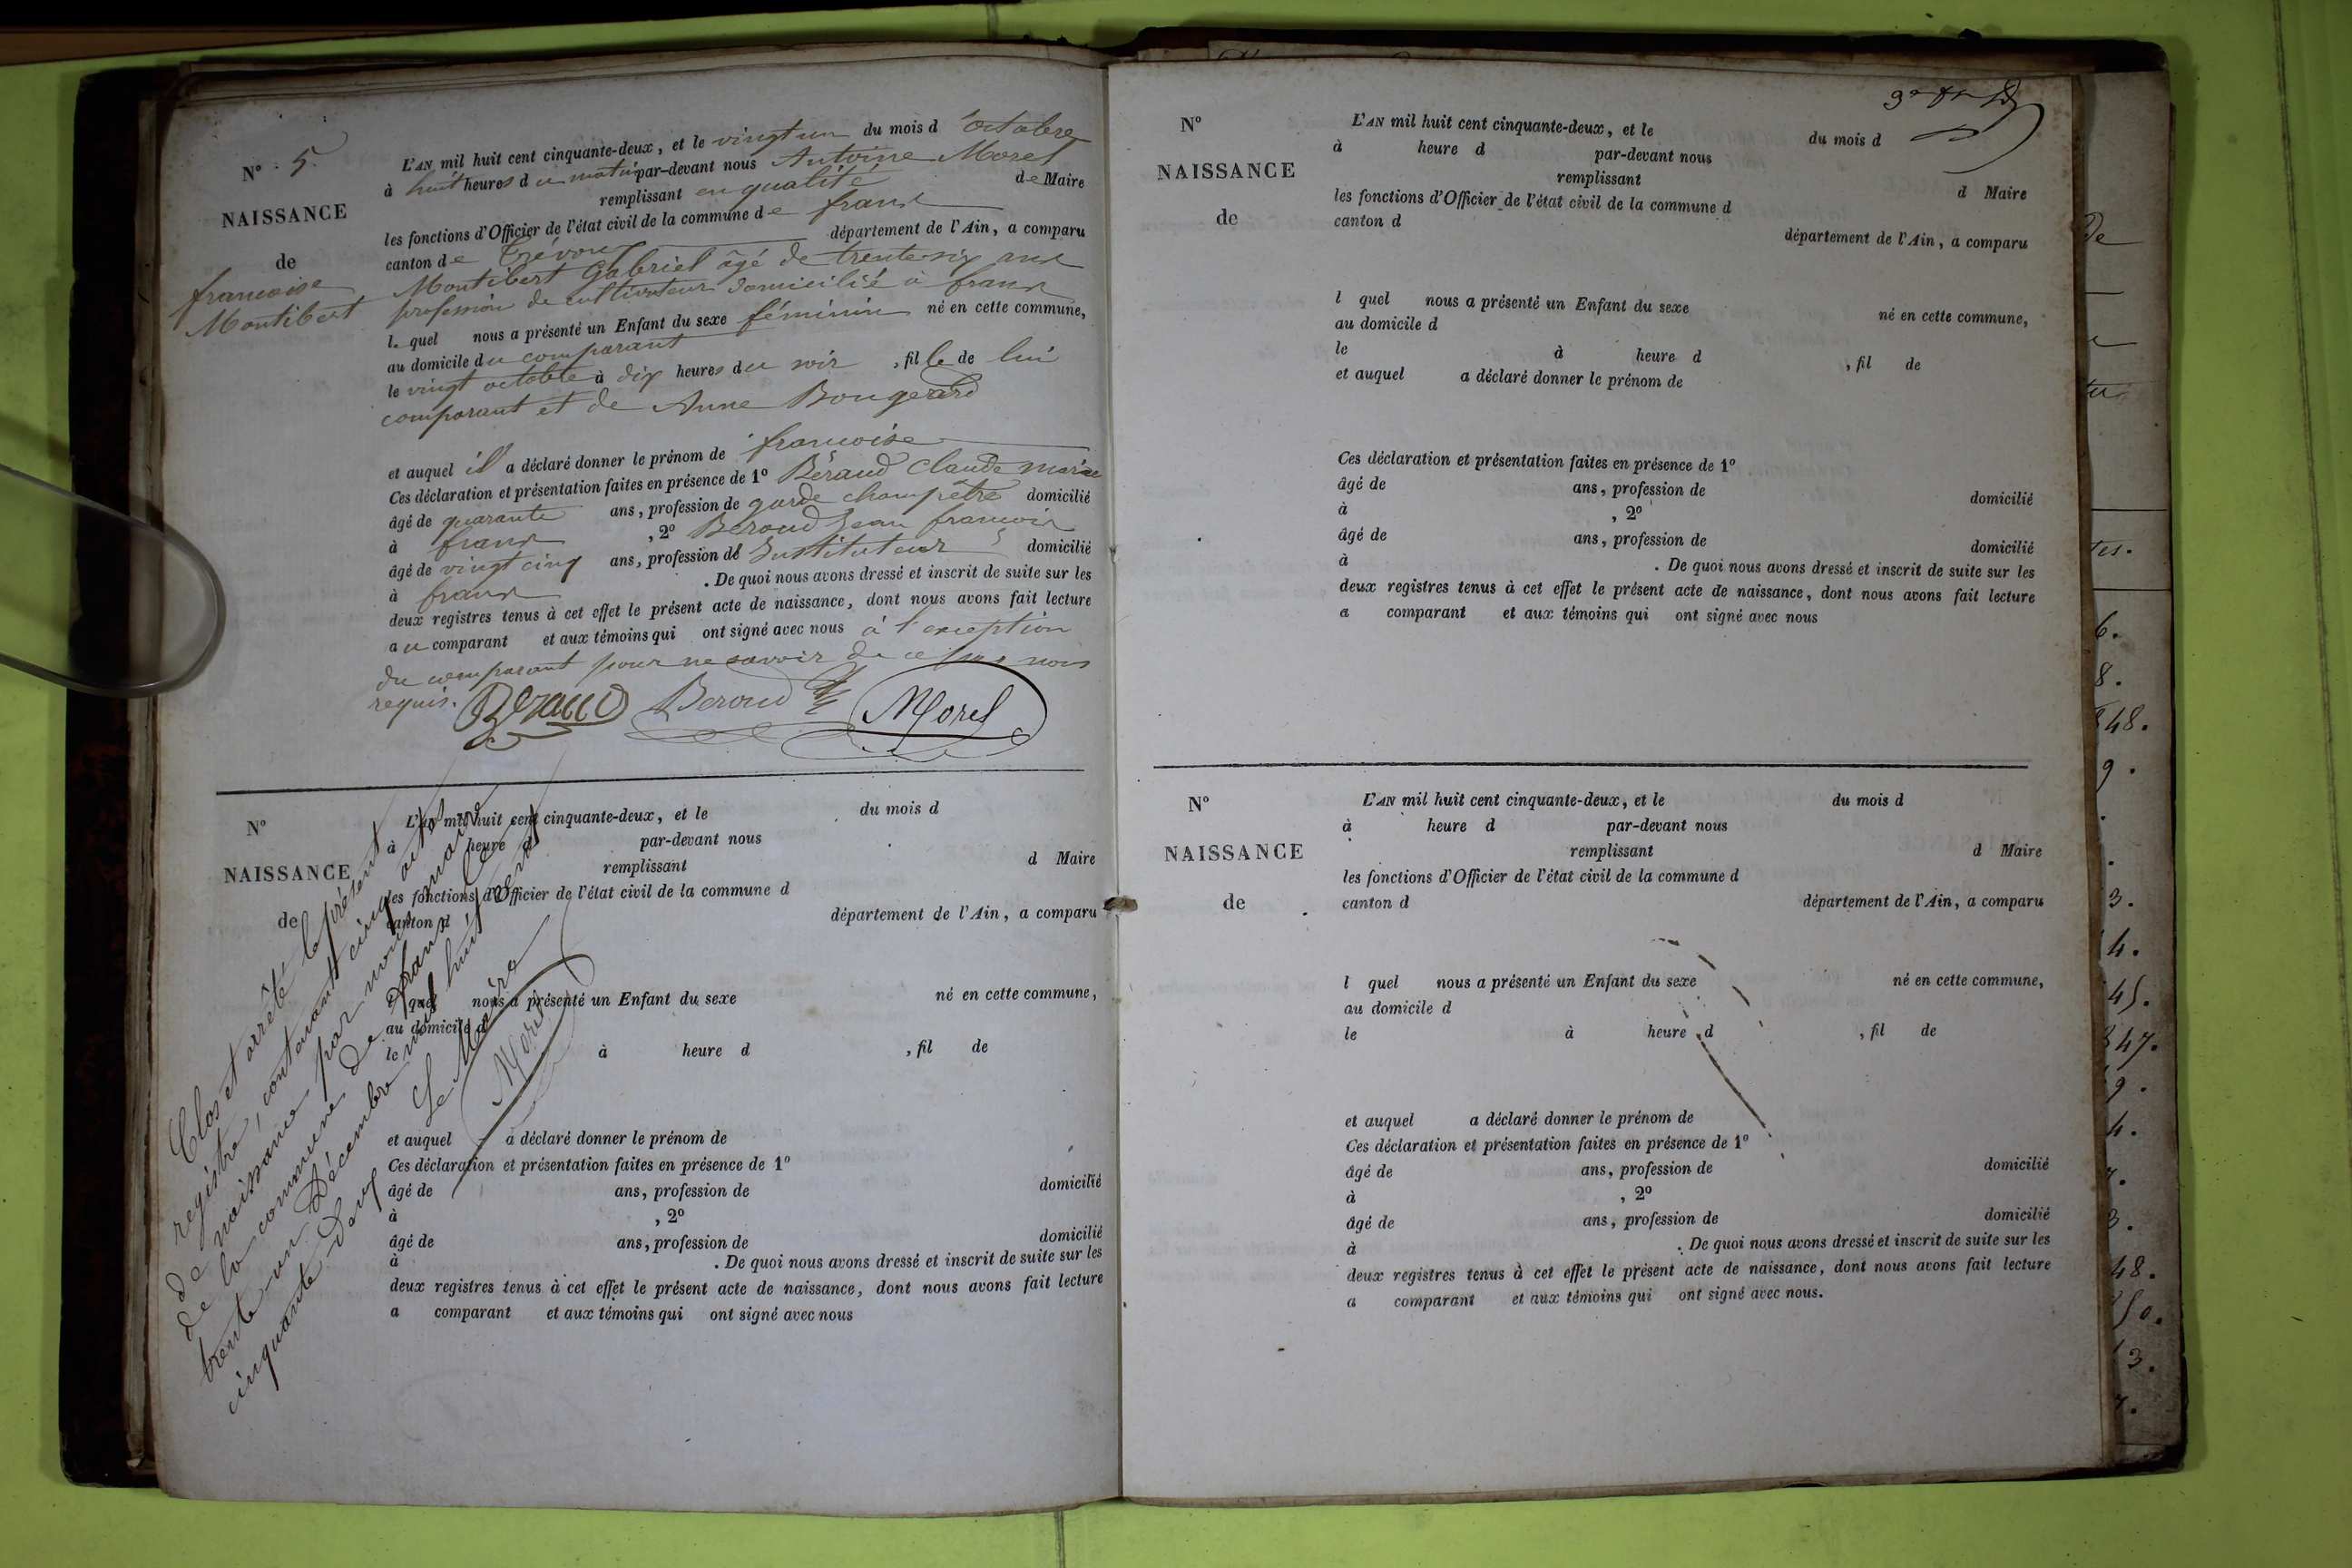 N° 5.
NAISSANCE
de
francoise
Montibert
L'AN mil huit cent cinquante-deux, et le vingt un du mois d'octobre
à huit heures du matin par-devant nous Antoine Morel
remplissant en qualité de Maire
les fonctions d'Officier de l'état civil de la commune de frans
canton de Trévoux département de l'Ain, a comparu
Montibert Gabriel âgé de trente six ans
profession de cultivateur domicilié à frans
l. quel nous a présenté un Enfant du sexe féminin né en cette commune,
au domicile du comparant
le vingt octobre à dix heures du soir, fille de lui
comparant et de Anne Bougerard
et auquel il a déclaré donner le prénom de francoise
Ces déclaration et présentation faites en présence de 1° Béraud Claude marie
âgé de quarante ans, profession de garde champêtre domicilié
à frans, 2° Beroud Jean francois
âgé de vingt cinq ans, profession de Instituteur domicilié
à frans. De quoi nous avons dressé et inscrit de suite sur les
deux registres tenus à cet effet le présent acte de naissance, dont nous avons fait lecture
au comparant et aux témoins qui ont signé avec nous à l'exception
du comparant pour ne savoir de ce nous
requis. Beraud Beroud Morel
N°
NAISSANCE
de
L'AN mil huit cent cinquante-deux, et le du mois d
à heure d par-devant nous
remplissant d Maire
les fonctions d'Officier de l'état civil de la commune d
canton d département de l'Ain, a comparu
l quel nous a présenté un Enfant du sexe né en cette commune,
au domicile d
le à heure d , fil de
et auquel a déclaré donner le prénom de
Ces déclaration et présentation faites en présence de 1°
âgé de ans, profession de domicilié
à , 2°
âgé de ans, profession de domicilié
à . De quoi nous avons dressé et inscrit de suite sur les
deux registres tenus à cet effet le présent acte de naissance, dont nous avons fait lecture
a comparant et aux témoins qui ont signé avec nous
Clos et arrêté le présent
registre, contenant cinq actes
de naissance par nous maire
de la commune de frans le
trente un Décembre mil huit cent
cinquante deux
Le Maire
Morel
N°
NAISSANCE
de
L'AN mil huit cent cinquante-deux, et le du mois d
à heure d par-devant nous
remplissant d Maire
les fonctions d'Officier de l'état civil de la commune d
canton d département de l'Ain, a comparu
l quel nous a présenté un Enfant du sexe né en cette commune,
au domicile d
le à heure d , fil de
et auquel a déclaré donner le prénom de
Ces déclaration et présentation faites en présence de 1°
âgé de ans, profession de domicilié
à , 2°
âgé de ans, profession de domicilié
à . De quoi nous avons dressé et inscrit de suite sur les
deux registres tenus à cet effet le présent acte de naissance, dont nous avons fait lecture
a comparant et aux témoins qui ont signé avec nous
N°
NAISSANCE
de
L'AN mil huit cent cinquante-deux, et le du mois d
à heure d par-devant nous
remplissant d Maire
les fonctions d'Officier de l'état civil de la commune d
canton d département de l'Ain, a comparu
l quel nous a présenté un Enfant du sexe né en cette commune,
au domicile d
le à heure d , fil de
et auquel a déclaré donner le prénom de
Ces déclaration et présentation faites en présence de 1°
âgé de ans, profession de domicilié
à , 2°
âgé de ans, profession de domicilié
à . De quoi nous avons dressé et inscrit de suite sur les
deux registres tenus à cet effet le présent acte de naissance, dont nous avons fait lecture
a comparant et aux témoins qui ont signé avec nous.